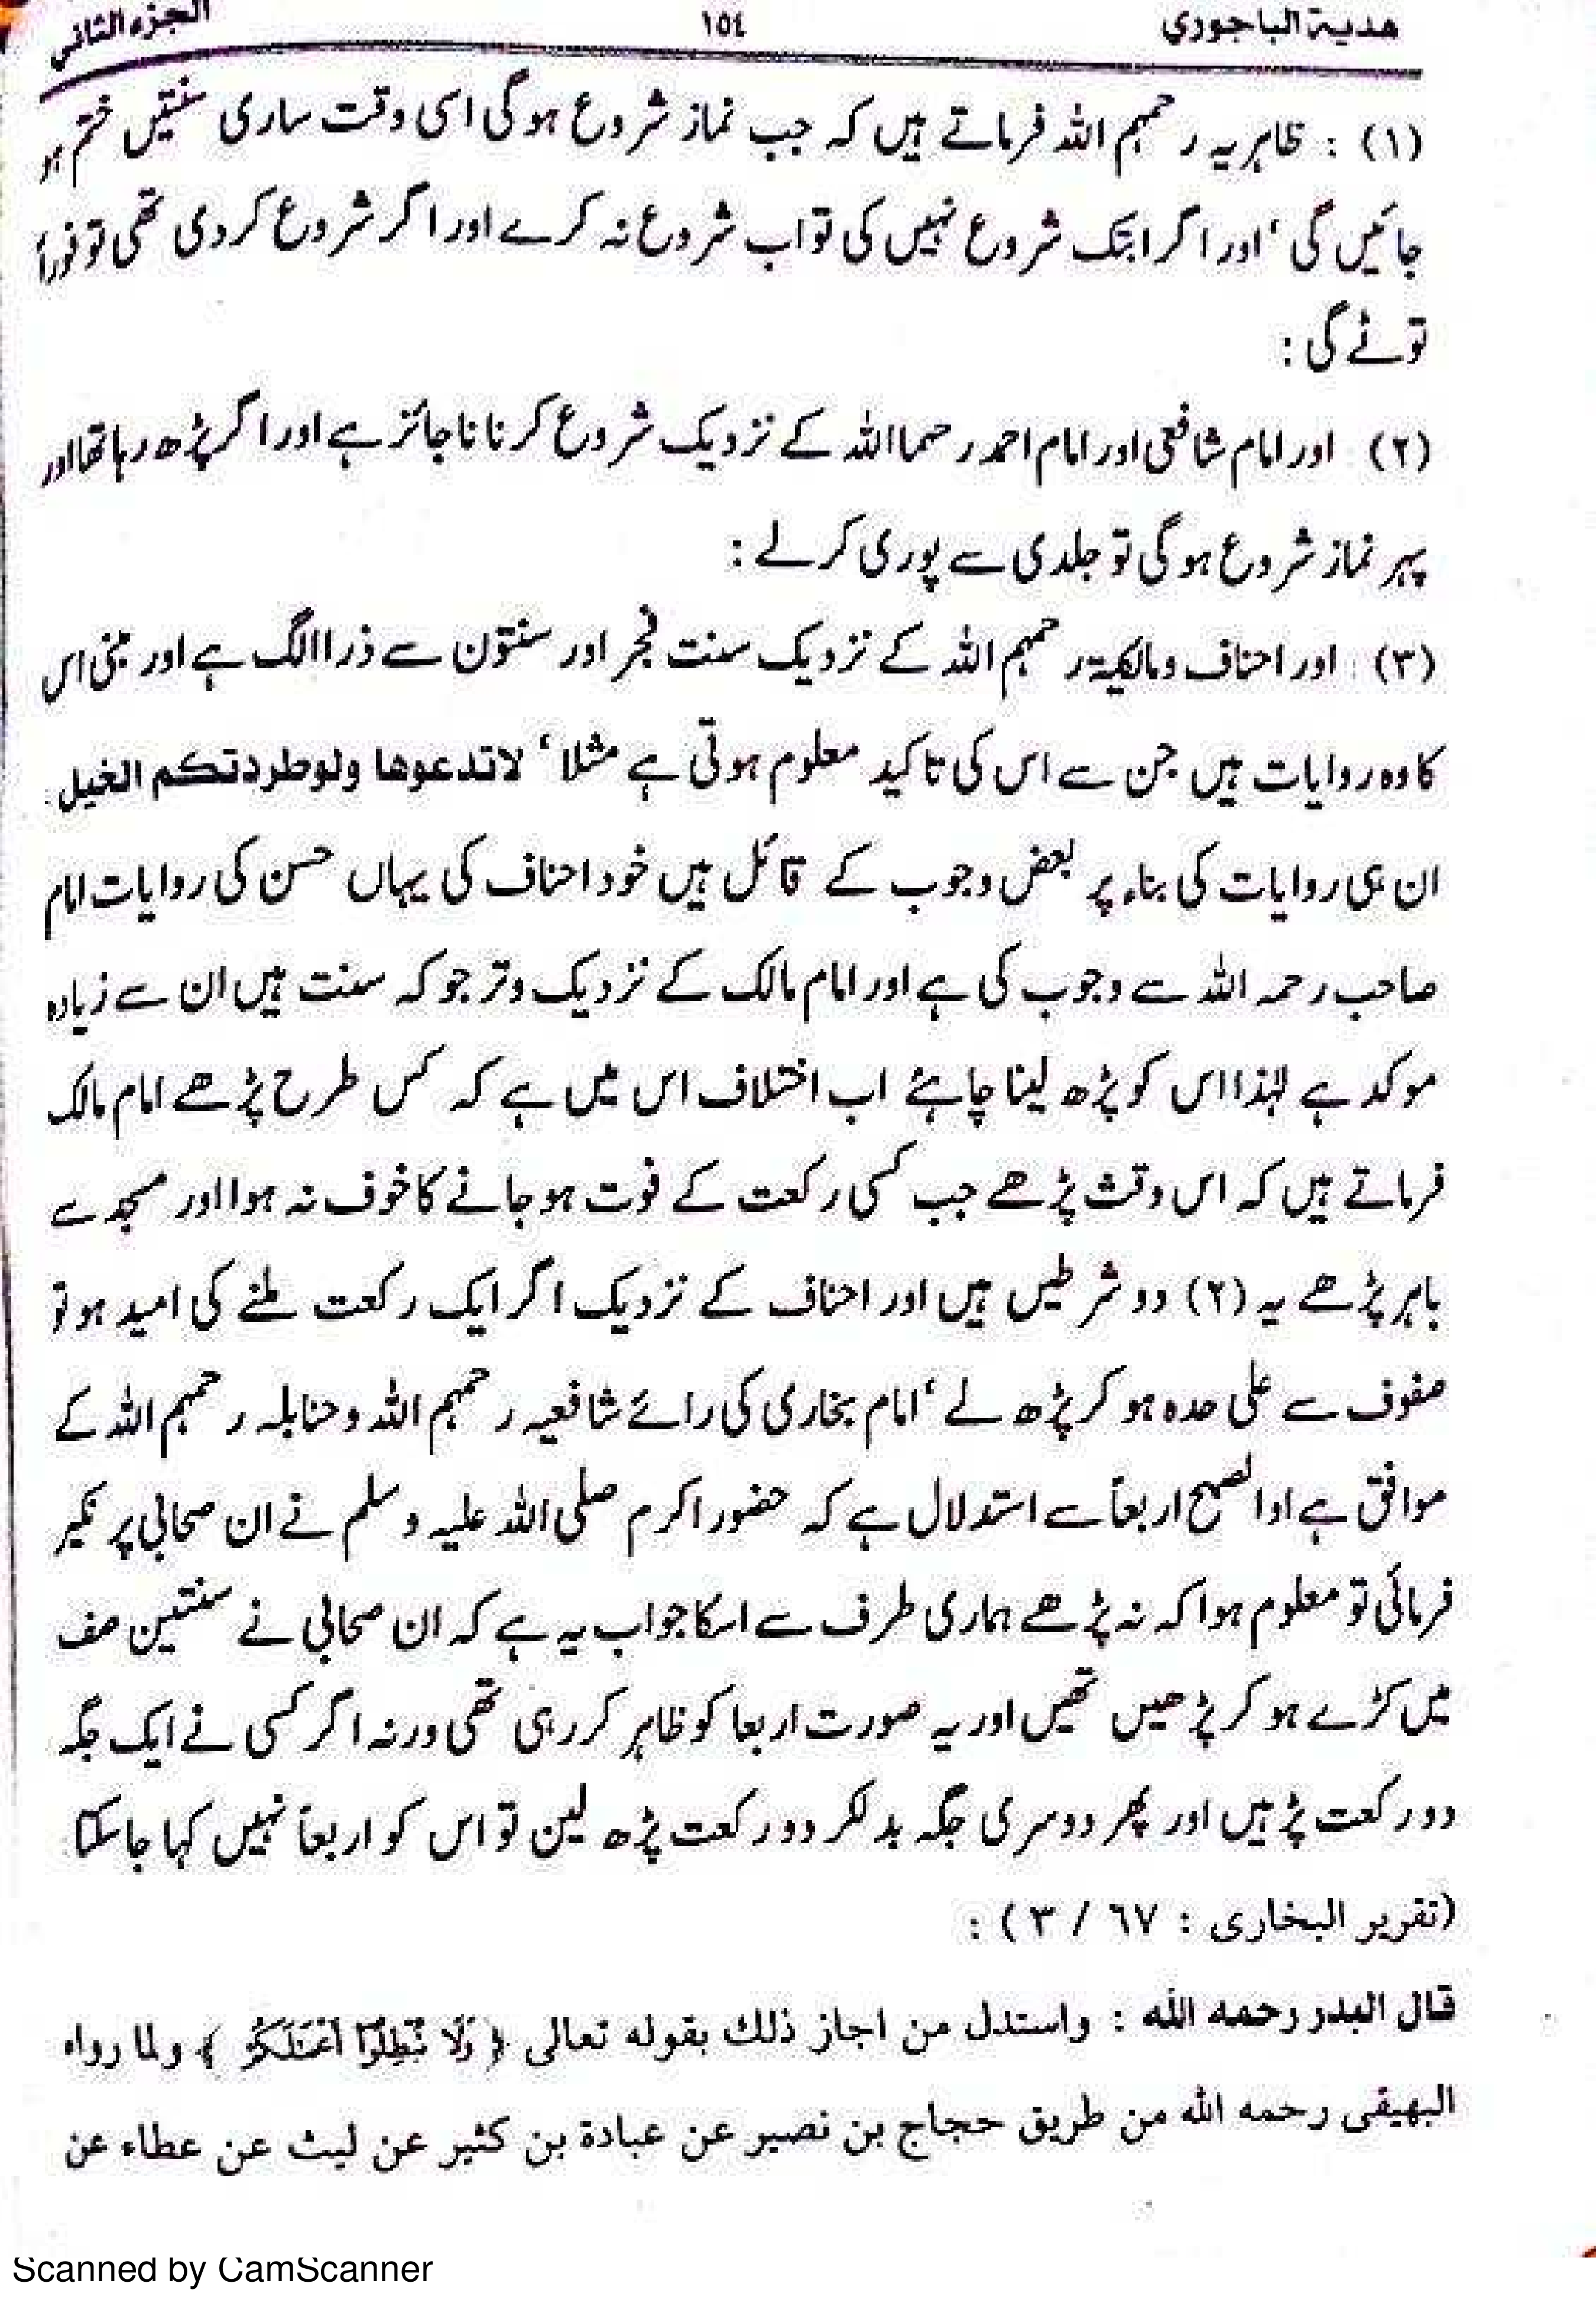 هدیة الباجوري ١٥٤ الجزء الثاني
(١) : ظاہریہ رحمہم اللہ فرماتے ہیں کہ جب نماز شروع ہوگی اسی وقت ساری سنتیں ختم ہو
جائیں گی ‘ اور اگر ابتک شروع نہیں کی تو اب شروع نہ کرے اور اگر شروع کردی تھی تو فوراً
توئے گی :
(٢) اور امام شافعی اور امام احمد رحمہا اللہ کے نزدیک شروع کرنا ناجائز ہے اور اگر پڑھ رہا تھا اور
پہر نماز شروع ہوگی تو جلدی سے پوری کرلے :
(٣) : اور احناف ومالکیة رحمہم اللہ کے نزدیک سنت فجر اور سنتون سے ذرا الگ ہے اور مبنی اس
کا وہ روایات ہیں جن سے اس کی تاکید معلوم ہوتی ہے مثلا ‘ لاتدعوها ولوطردتكم الخيل :
ان ہی روایات کی بناء پر بعض وجوب کے قائل ہیں خود احناف کی یہاں حسن کی روایات امام
صاحب رحمہ اللہ سے وجوب کی ہے اور امام مالک کے نزدیک وتر جو کہ سنت ہیں ان سے زیادہ
موکد ہے لہٰذا اس کو پڑھ لینا چاہئے اب اختلاف اس میں ہے کہ کس طرح پڑھے امام مالک
فرماتے ہیں کہ اس وقت پڑھے جب کسی رکعت کے فوت ہوجانے کا خوف نہ ہوا اور مسجد سے
باہر پڑھے یہ (٢) دو شرطیں ہیں اور احناف کے نزدیک اگر ایک رکعت ملنے کی امید ہو تو
صفوف سے علی حدہ ہو کر پڑھ لے ‘ امام بخاری کی رائے شافعیہ رحمہم اللہ وحنابلہ رحمہم اللہ کے
موافق ہے اوا لصبح اربعاً سے استدلال ہے کہ حضور اکرم صلی اللہ علیہ وسلم نے ان صحابی پر نکیر
فرمائی تو معلوم ہوا کہ نہ پڑھے ہماری طرف سے اسکا جواب یہ ہے کہ ان صحابی نے سنتین صف
میں کڑے ہو کر پڑھیں تھیں اور یہ صورت اربعا کو ظاہر کررہی تھی ورنہ اگر کسی نے ایک جگہ
دو رکعت پڑہیں اور پھر دوسری جگہ بدلکر دو رکعت پڑھ لین تو اس کو اربعاً نہیں کہا جاسکتا
(تقریر البخاری : ٦٧ / ٣) :
قال البدر رحمه الله : واستدل من اجاز ذلك بقوله تعالى ﴿ وَلَا تُبْطِلُوٓا أَعْمَٰلَكُمْ ﴾ ولما رواه
البهيقى رحمه الله من طريق حجاج بن نصير عن عبادة بن كثير عن ليث عن عطاء عن
Scanned by CamScanner